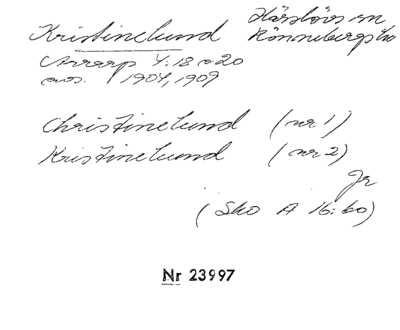 Kristinelund Härslövs sn
Rönnebergs hd
Arrarp 4:18 o 20
avs. 1904, 1909
Christinelund (nr 1)
Kristinelund (nr 2)
Jr
(Sko A 16:60)
Nr 23997